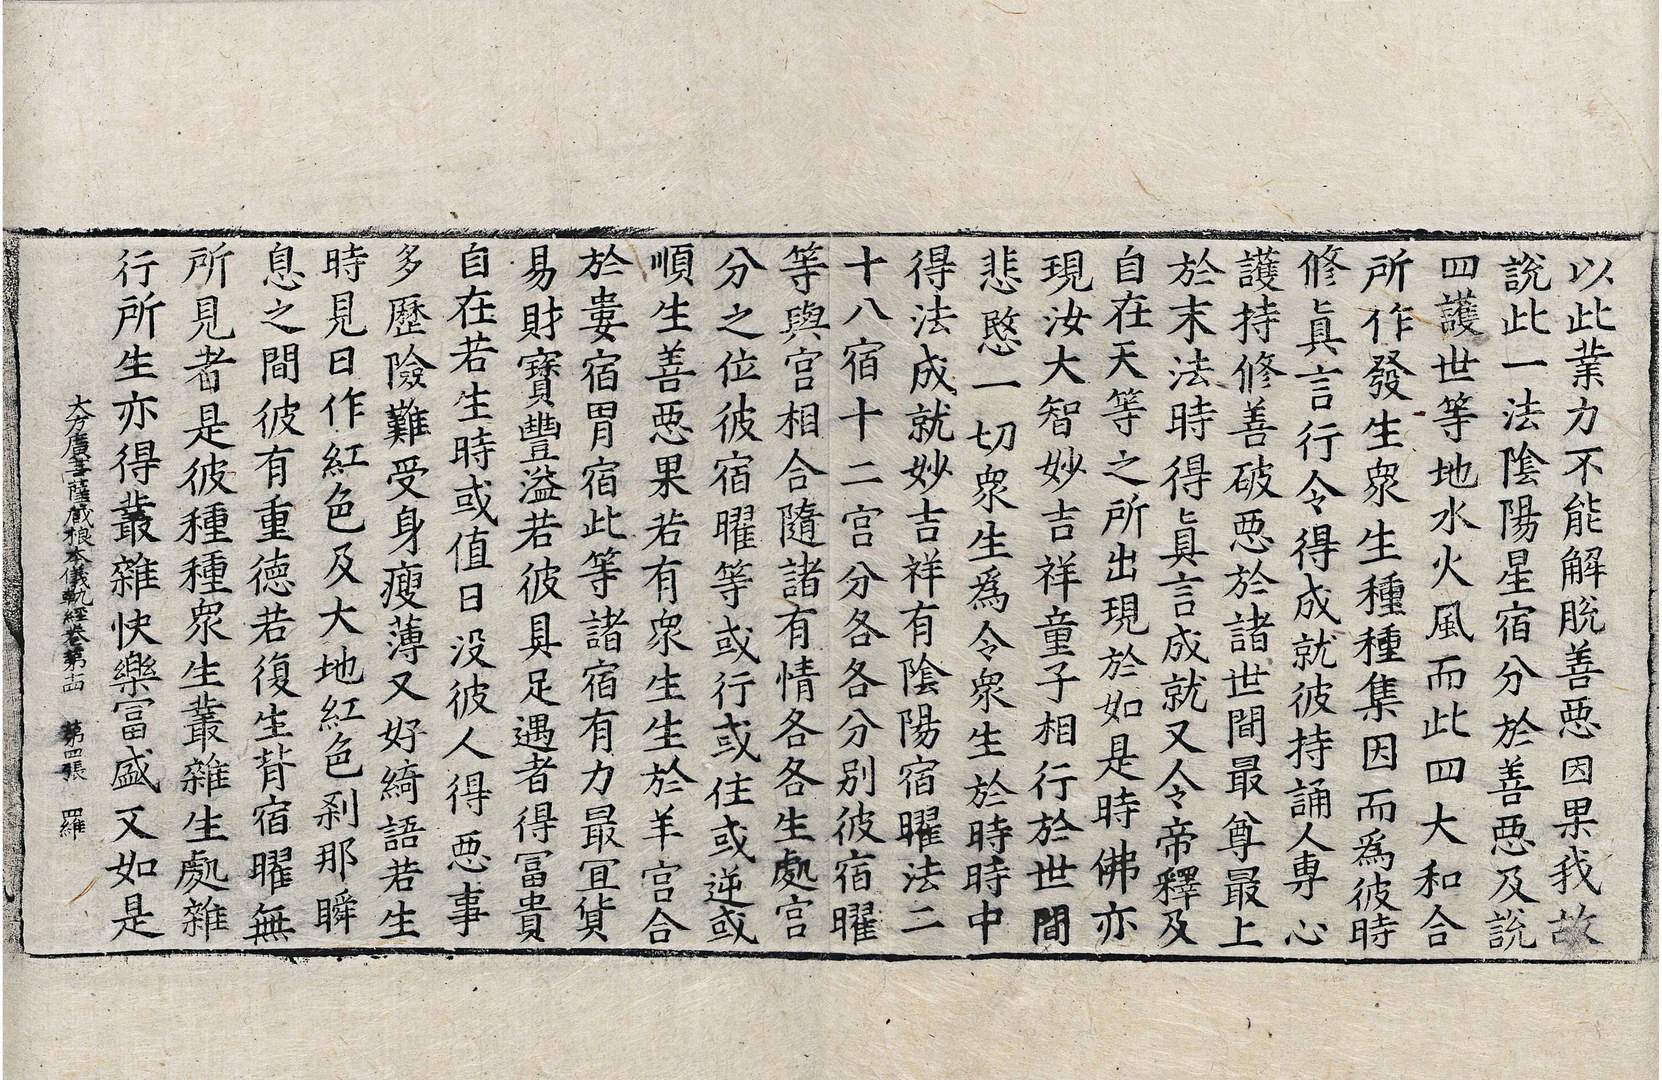 以此業力不能解脫善惡因果我故
說此一法陰陽星宿分於善惡及說
四護世等地水火風而此四大和合
所作發生衆生種種集因而爲彼時
修眞言行令得成就彼持誦人專心
護持修善破惡於諸世間最尊最上
於末法時得眞言成就又令帝釋及
自在天等之所出現於如是時佛亦
現汝大智妙吉祥童子相行於世間
悲愍一切衆生爲令衆生於時時中
得法成就妙吉祥有陰陽宿曜法二
十八宿十二宫分各各分別彼宿曜
等與宫相合隨諸有情各各生處宫
分之位彼宿曜等或行或住或逆或
順生善惡果若有衆生生於羊宫合
於婁宿胃宿此等諸宿有力最宜貨
易財寶豐溢若彼具足遇者得冨貴
自在若生時或值日没彼人得惡事
多歷險難受身瘦薄又好綺語若生
時見日作紅色及大地紅色刹那瞬
息之間彼有重德若復生背宿曜無
所見者是彼種種衆生叢雜生處雜
行所生亦得叢雜快樂冨盛又如是
大方廣菩薩藏根本儀軌經卷第十四 第四張 羅